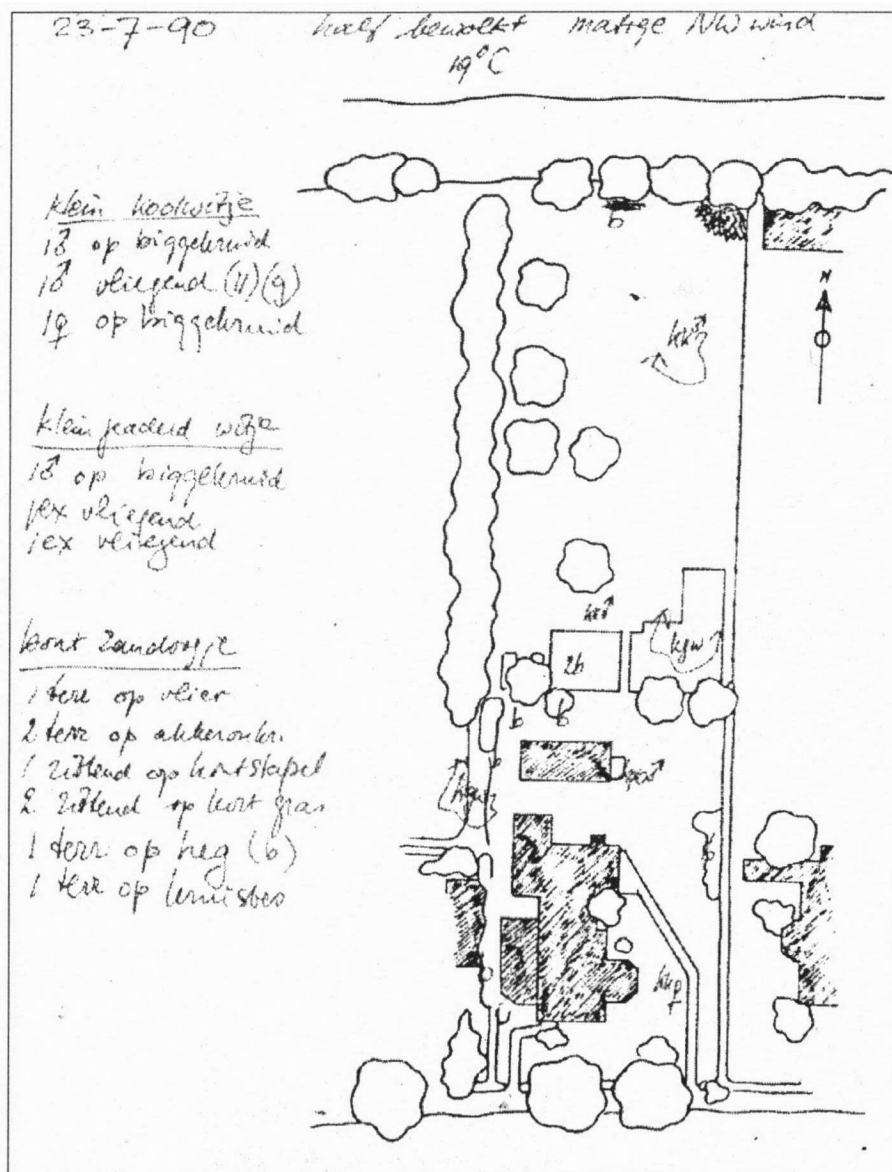 23-7-90 half bewolkt matige NW wind
19°C
klein koolwitje
1♂ op biggekruid
1♂ vliegend (11) (9)
1♀ op biggekruid
klein geaderd witje
1♂ op biggekruid
1ex vliegend
1ex vliegend
bont zandoogje
1 terr op vlier
2 terr op akkeronkr.
1 zittend op houtstapel
2 zittend op kort gras
1 terr op heg (b)
1 terr op kruisbes
N
b
kk♂
kgw♂
2b
b
b